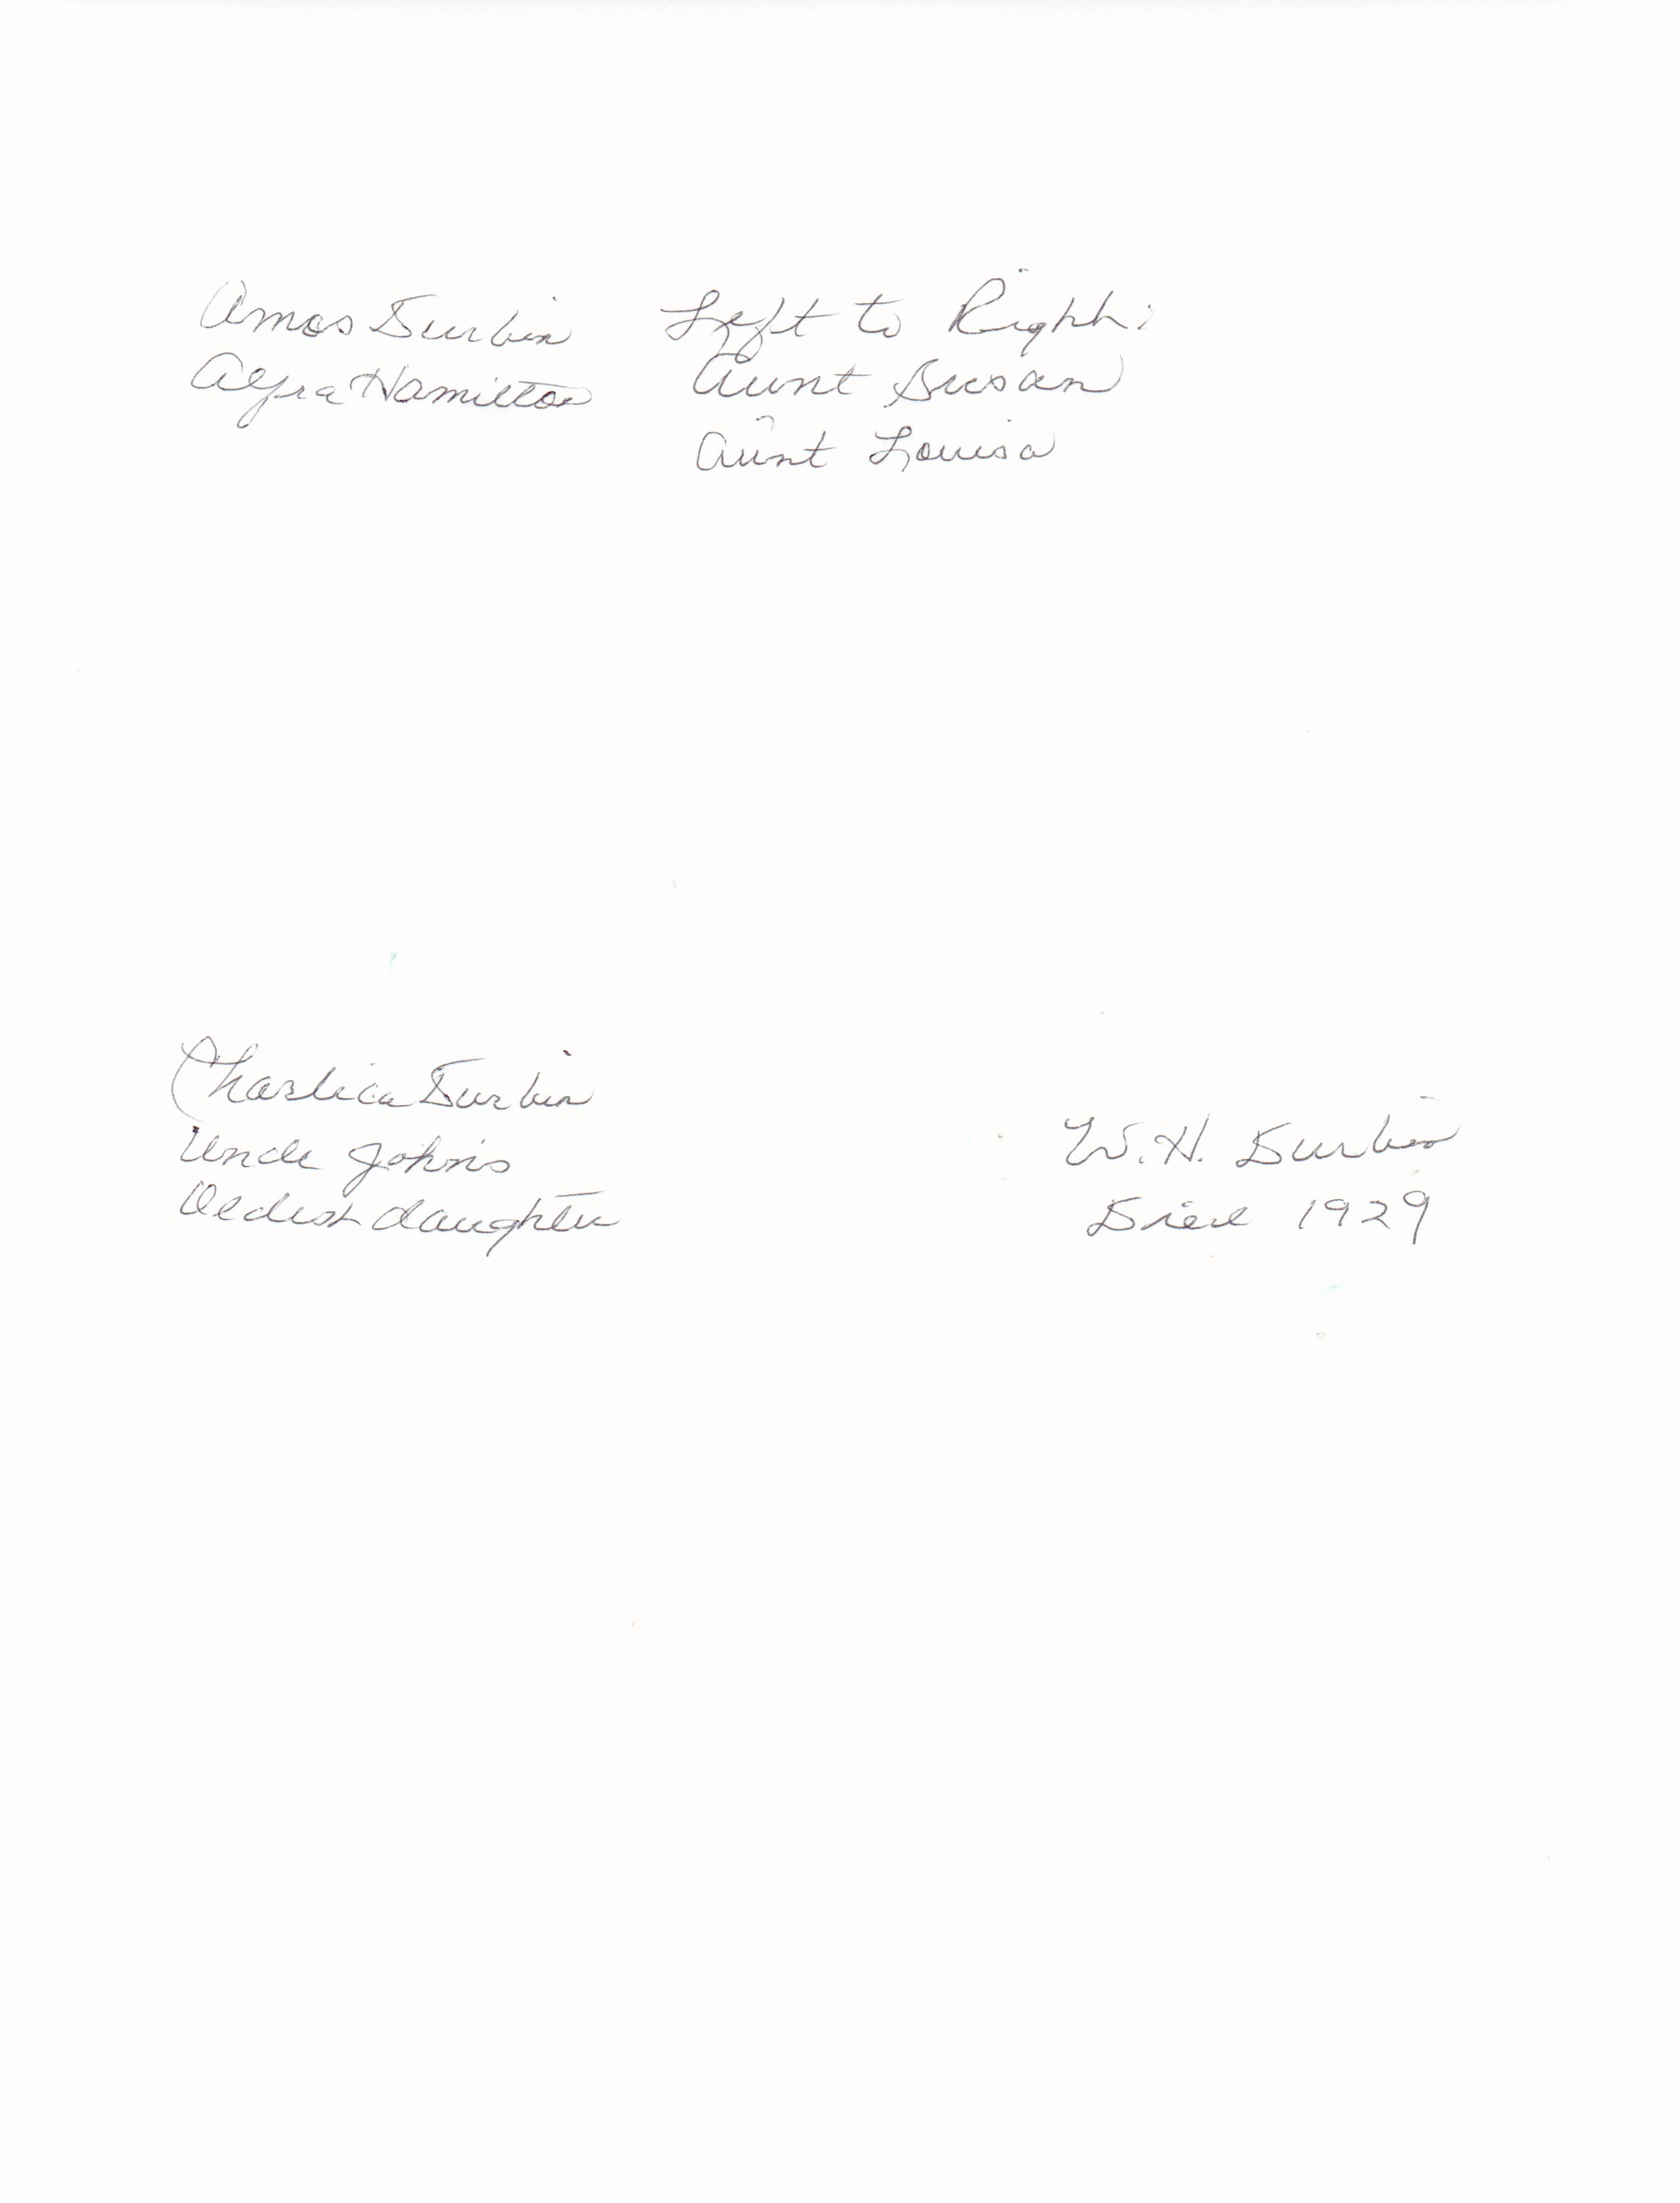 Amos Durbin
Alfra Hamilton
Left to Right:
Aunt Susan
Aunt Louisa
Durbin
Uncle John's
Oldest daughter
W. H. Durbin
Died 1929